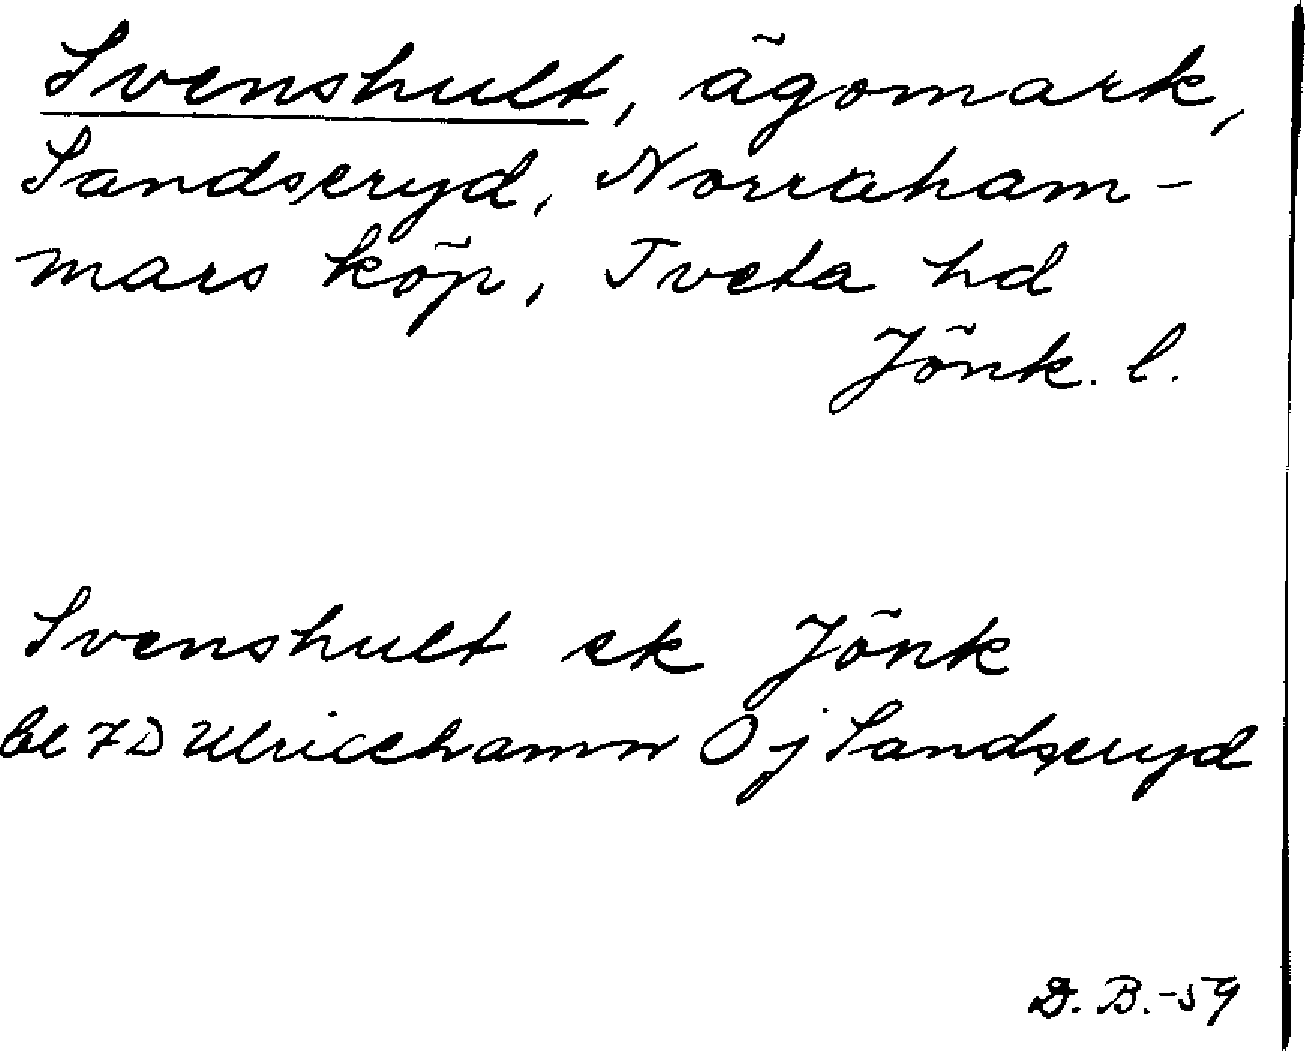 Svenshult, ägomark,
Sandseryd, Norraham-
mars köp, Tveta hd
Jönk. l.
Svenshult ek Jönk
bl 7D Ulricehamn Oj Sandseryd
D. B.-59